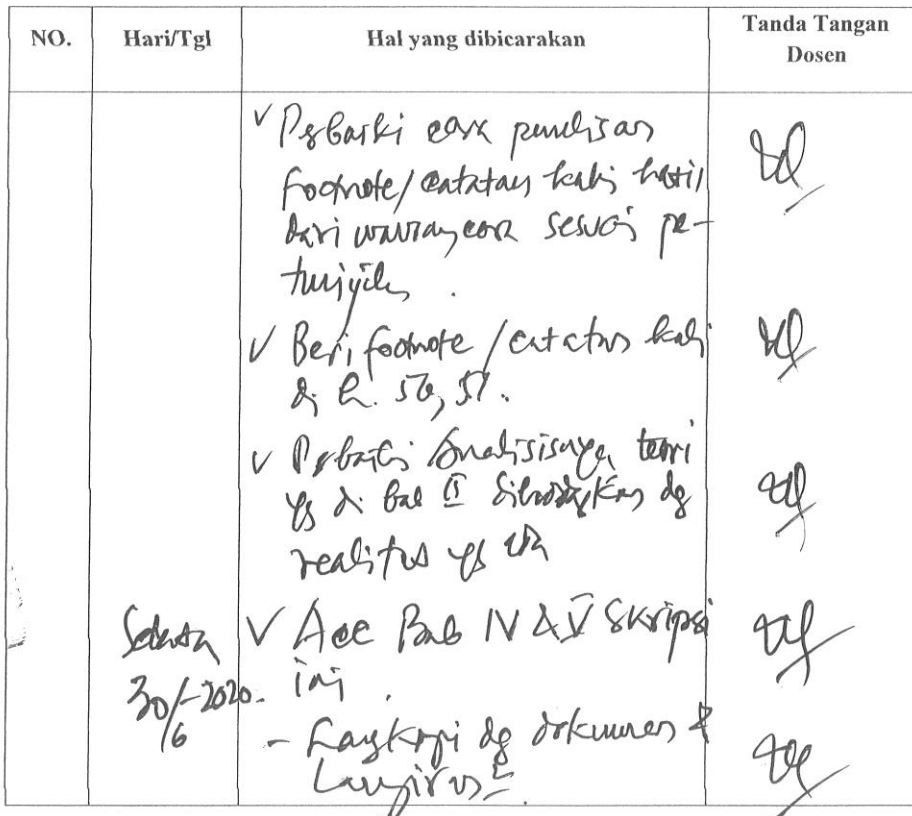 NO.
Hari/Tgl
Hal yang dibicarakan
Tanda Tangan
Dosen
✓ Perbaiki cara penulisan
footnote/catatan kaki hasil
dari wawancara sesuai pe-
tunjuk.
✓ Beri footnote/catatan kaki
di h. 56, 57.
✓ Perbaiki Analisisnya, teori
yg di bab II dg
realitas yg ada
Selasa
30/6-2020.
✓ Acc Bab IV & V Skripsi
ini.
- Lengkapi dg dokumen &
Lampiran²